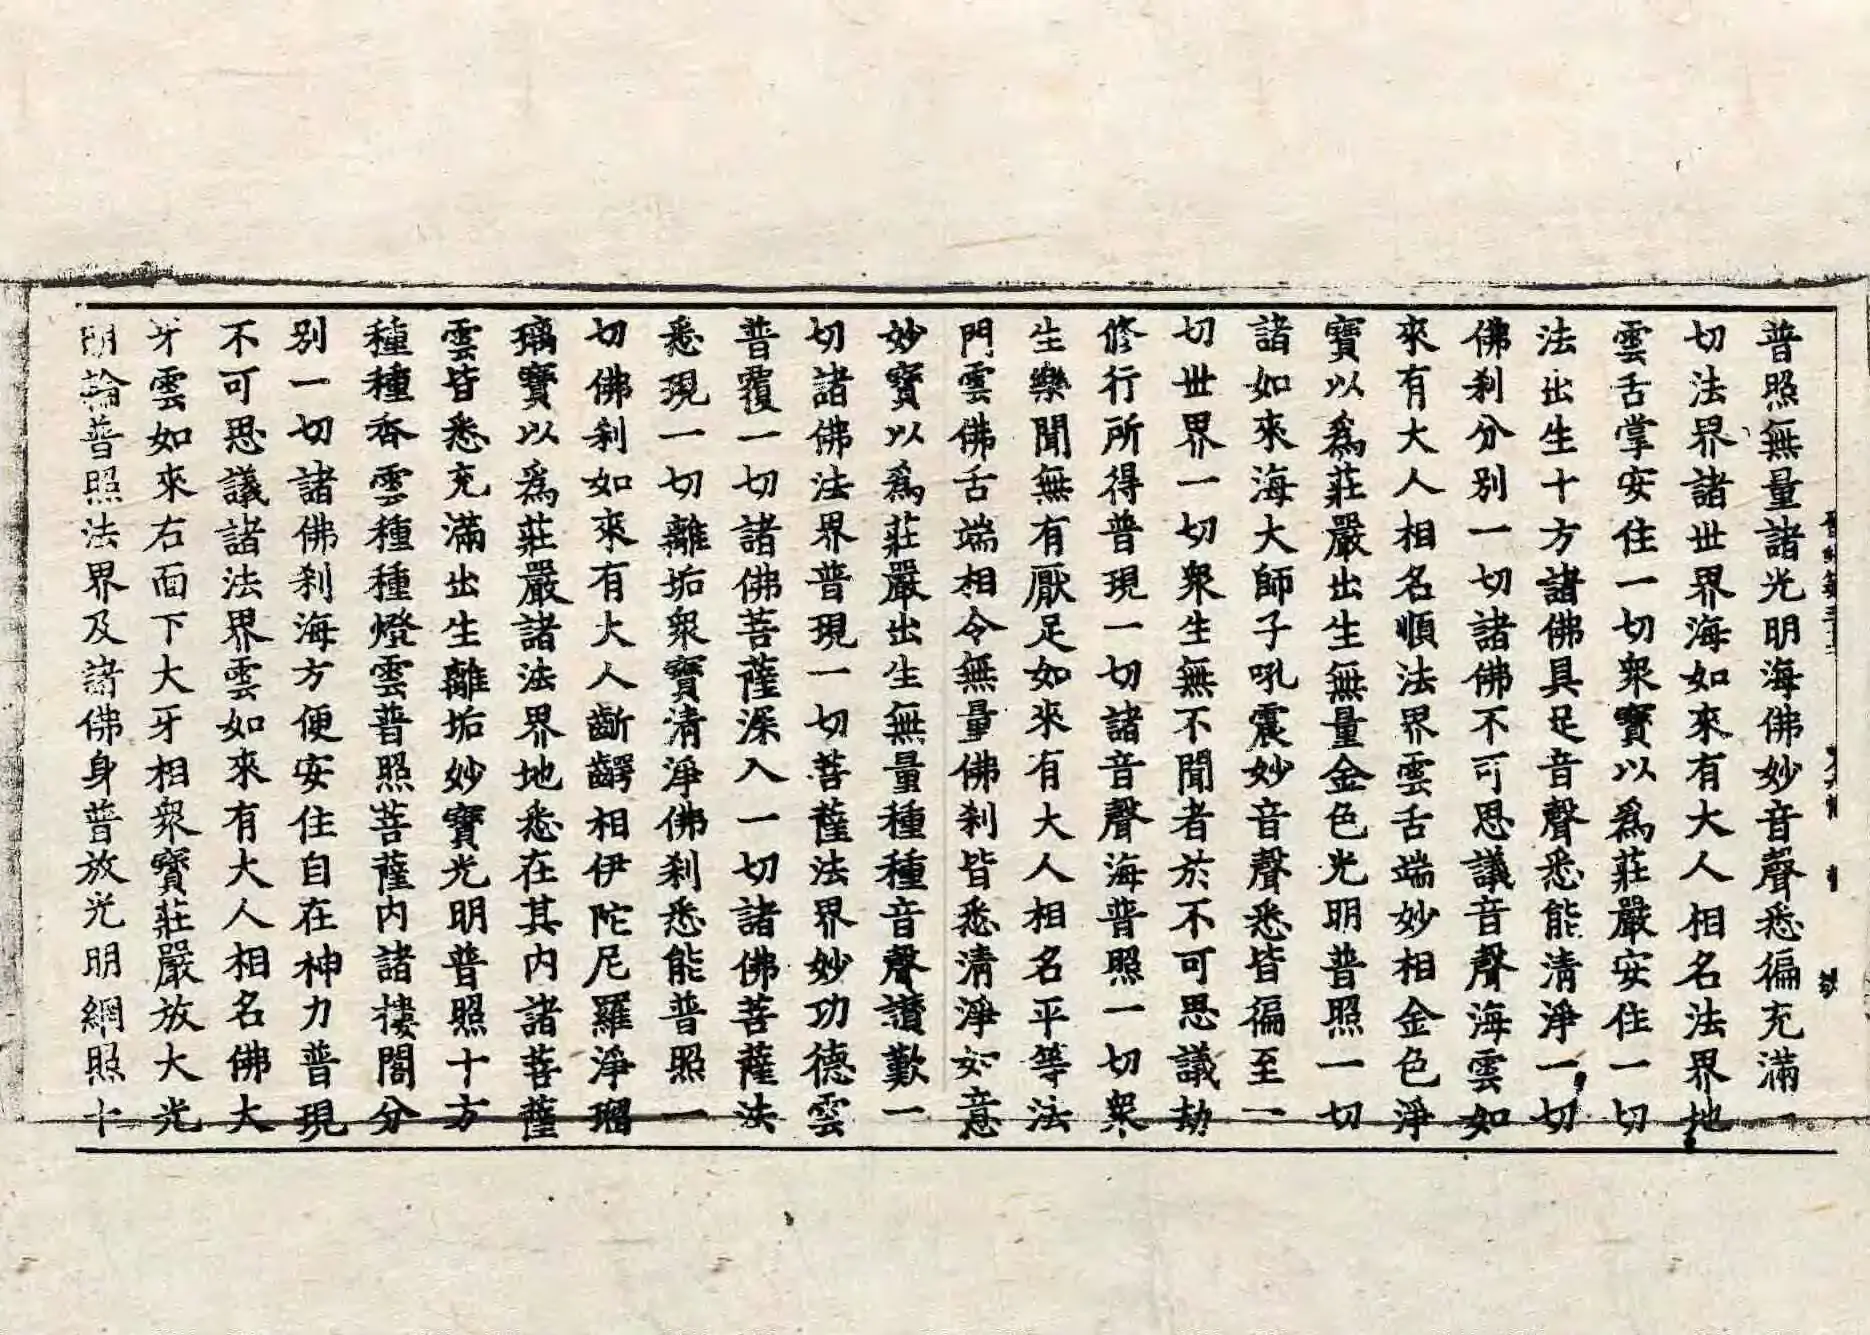 普照無量諸光明海佛妙音聲悉徧充滿一
切法界諸世界海如來有大人相名法界地
雲舌掌安住一切衆寶以爲莊嚴安住一切
法出生十方諸佛具足音聲悉能清淨一切
佛刹分別一切諸佛不可思議音聲海雲如
來有大人相名順法界雲舌端妙相金色淨
寶以爲莊嚴出生無量金色光明普照一切
諸如來海大師子吼震妙音聲悉皆徧至一
切世界一切衆生無不聞者於不可思議劫
修行所得普現一切諸音聲海普照一切衆
生樂聞無有厭足如來有大人相名平等法
門雲佛舌端相令無量佛刹皆悉清淨如意
妙寶以爲莊嚴出生無量種種音聲讚歎一
切諸佛法界普現一切菩薩法界妙功德雲
普覆一切諸佛菩薩深入一切諸佛菩薩法
悉現一切離垢衆寶清淨佛刹悉能普照一
切佛刹如來有大人齗齶相伊陀尼羅淨瑠
璃寶以爲莊嚴諸法界地悉在其內諸菩薩
雲皆悉充滿出生離垢妙寶光明普照十方
種種香雲種種燈雲普照菩薩內諸樓閣分
別一切諸佛刹海方便安住自在神力普現
不可思議諸法界雲如來有大人相名佛大
牙雲如來右面下大牙相衆寶莊嚴放大光
明輪普照法界及諸佛身普放光明網照十